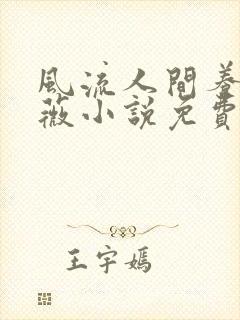 風流人間養
薇小說免費
王宇嫣